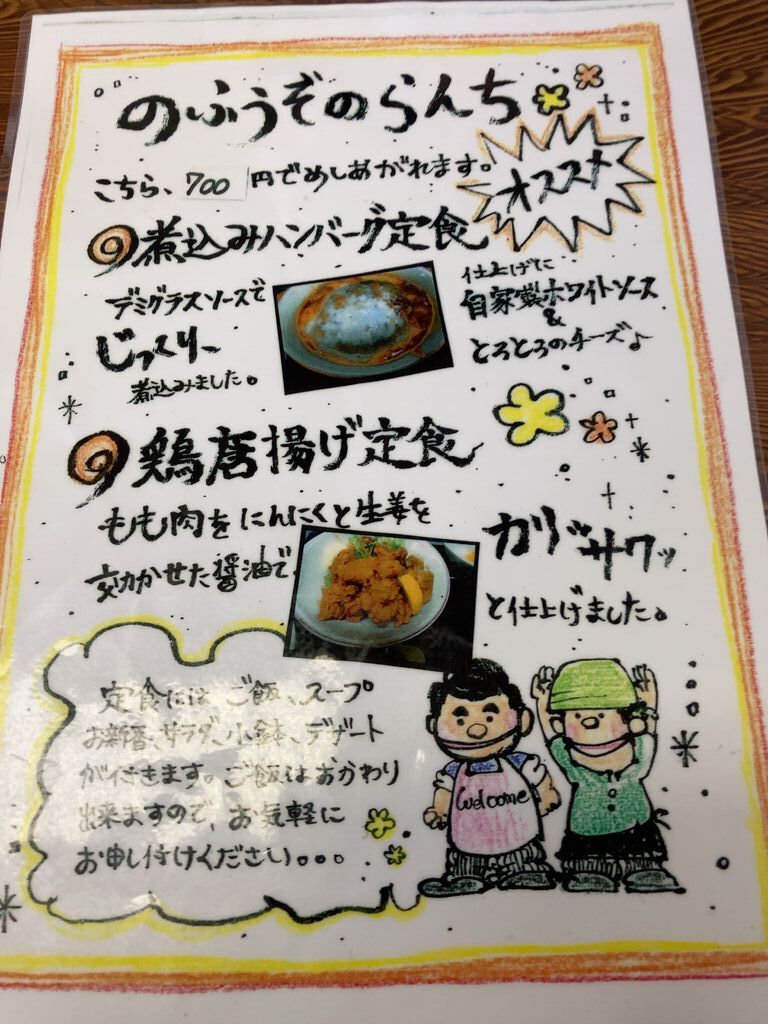 のふうぞのらんち
こちら、700円でめしあがれます。
オススメ
煮込みハンバーグ定食
デミグラスソースで
じっくり
煮込みました。
仕上げに
自家製ホワイトソース
&
とろとろのチーズ♪
鶏唐揚げ定食
もも肉をにんにくと生姜を
効かせた醤油で
カリッサクッ
と仕上げました。
定食には ご飯、スープ
お新香、サラダ、小鉢、デザート
が付きます。ご飯はおかわり
出来ますので、お気軽に
お申し付けください。。。
welcome